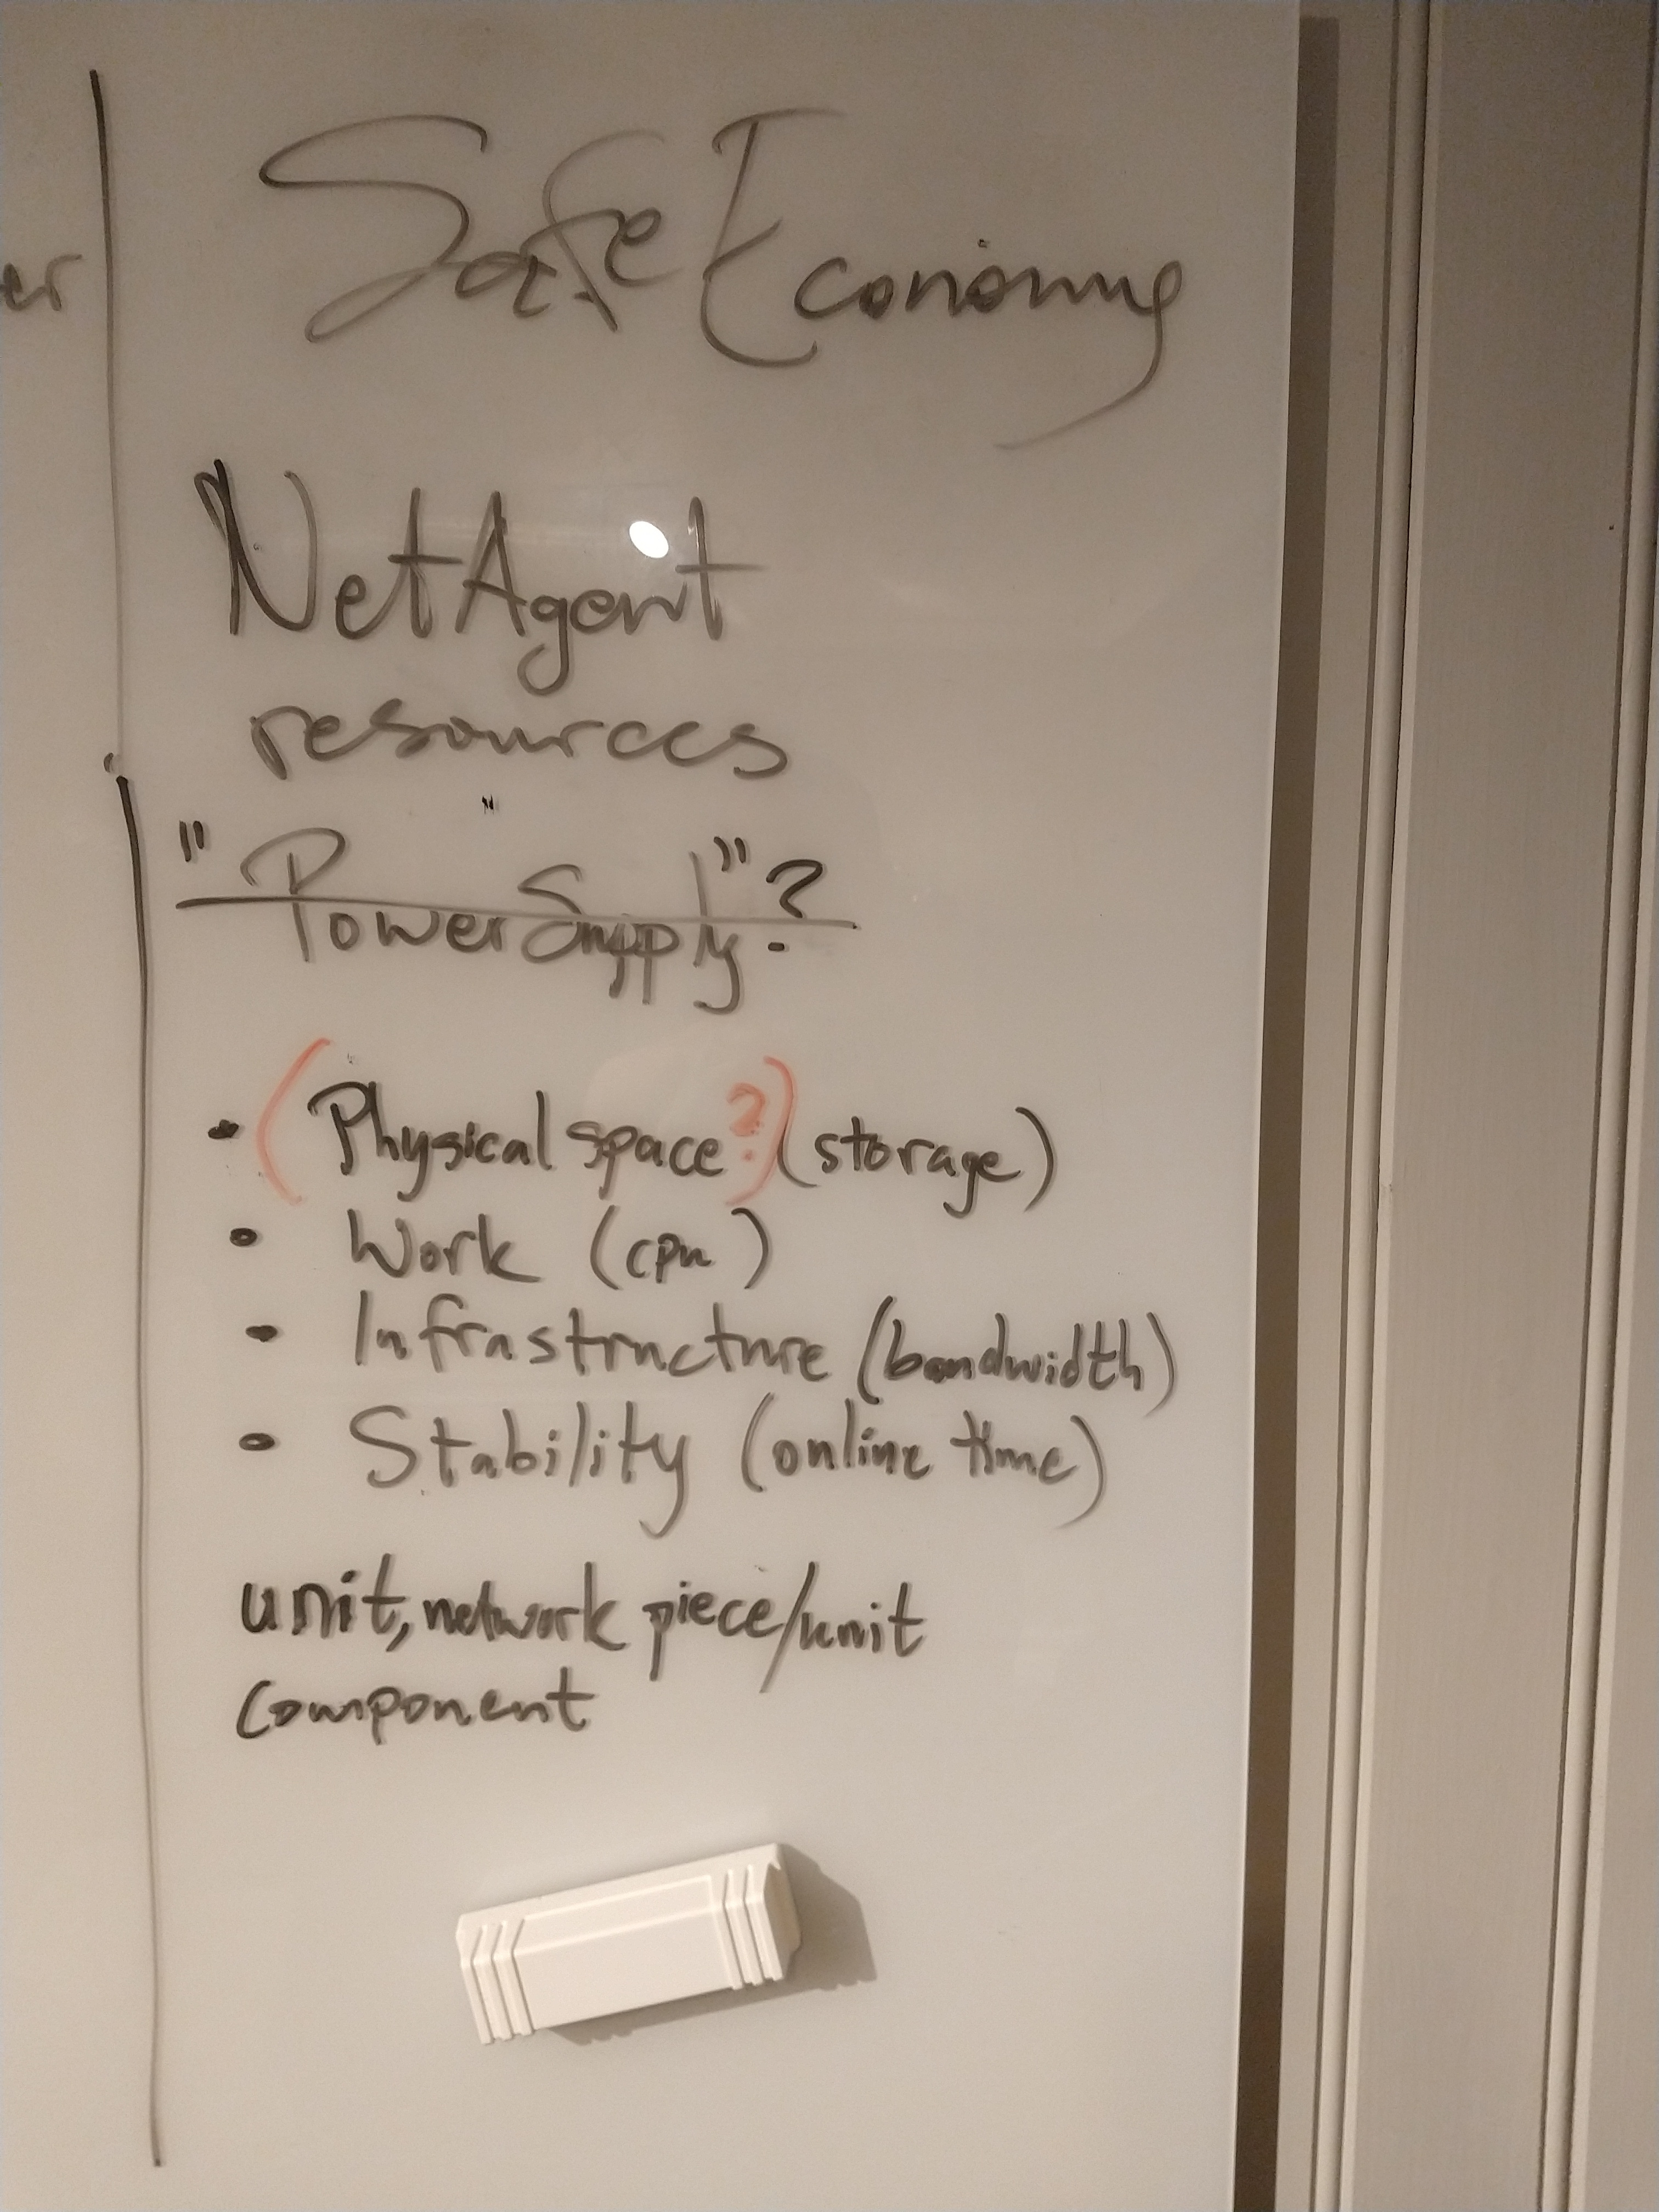 er
Safe Economy
NetAgent
resources
"PowerSupply"?
• (Physical space?) (storage)
• Work (cpu)
• Infrastructure (bandwidth)
• Stability (online time)
unit, network piece/unit
component